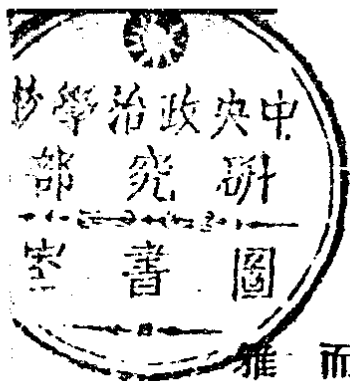 中央政治學校
研究部
圖書室
雅而